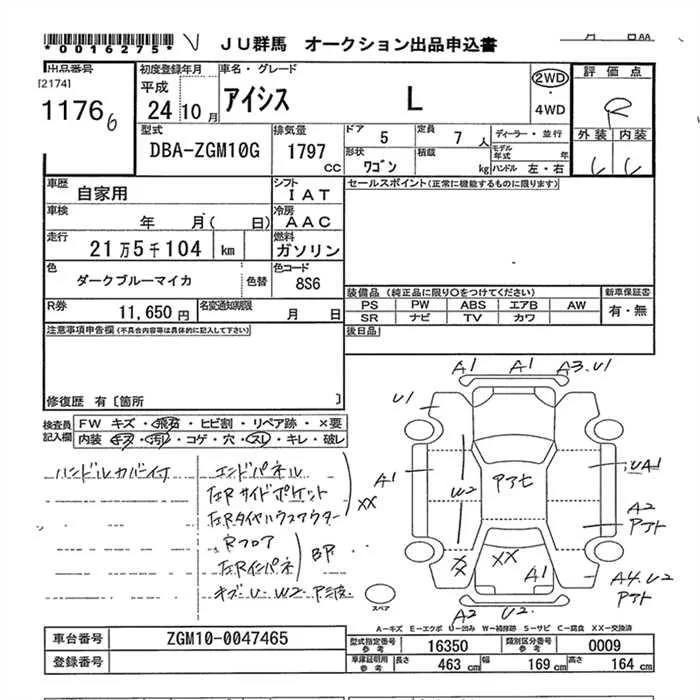 *0016275*
JU群馬 オークション出品申込書
月 日AA
出品番号
[2174]
1176 6
初度登録年月
平成
24 10 月
車名・グレード
アイシス L
2WD
・
4WD
評価点
R
外装 内装
型式
DBA-ZGM10G
排気量
1797
CC
ドア 5
定員 7 人
形状 ワゴン
積載 kg
ディーラー・並行
モデル年式 年
ハンドル 左・右
車歴
自家用
シフト
IAT
セールスポイント(正常に機能するものに限ります)
車検
年 月( 日)
冷房
AAC
走行
21万5千104 km
燃料
ガソリン
色
ダークブルーマイカ
色替
色コード
8S6
装備品 (純正品に限り○をつけてください)
新車保証書
PS PW ABS エアB AW
有・無
SR ナビ TV カワ
R券
11,650円
名変通知期限
月 日
後日品
注意事項申告欄(不具合内容等は具体的に記入して下さい)
修復歴 有〔箇所 〕
検査員
記入欄
FW キズ・飛石・ヒビ割・リペア跡・×要
内装 キズ・汚レ・コゲ・穴・スレ・キレ・破レ
ハンドルカバー付
エンドパネル
左Rサイドポケット
XX
Rフロア
左Rインパネ
BP
キズ U W2
A1 A1 A3.U1
U1
A1
UA1
W2
アアセ
A2
アアト
XX
XX
A1
A4.U2
アアト
A2 U2
スペア
A−キズ E−エクボ U−凹み W−補修跡 S−サビ C−腐食 XX−交換済
車台番号
ZGM10-0047465
型式指定番号
参考
16350
類別区分番号
参考
0009
登録番号
車庫証明用
参考
長さ 463 cm
幅 169 cm
高さ 164 cm